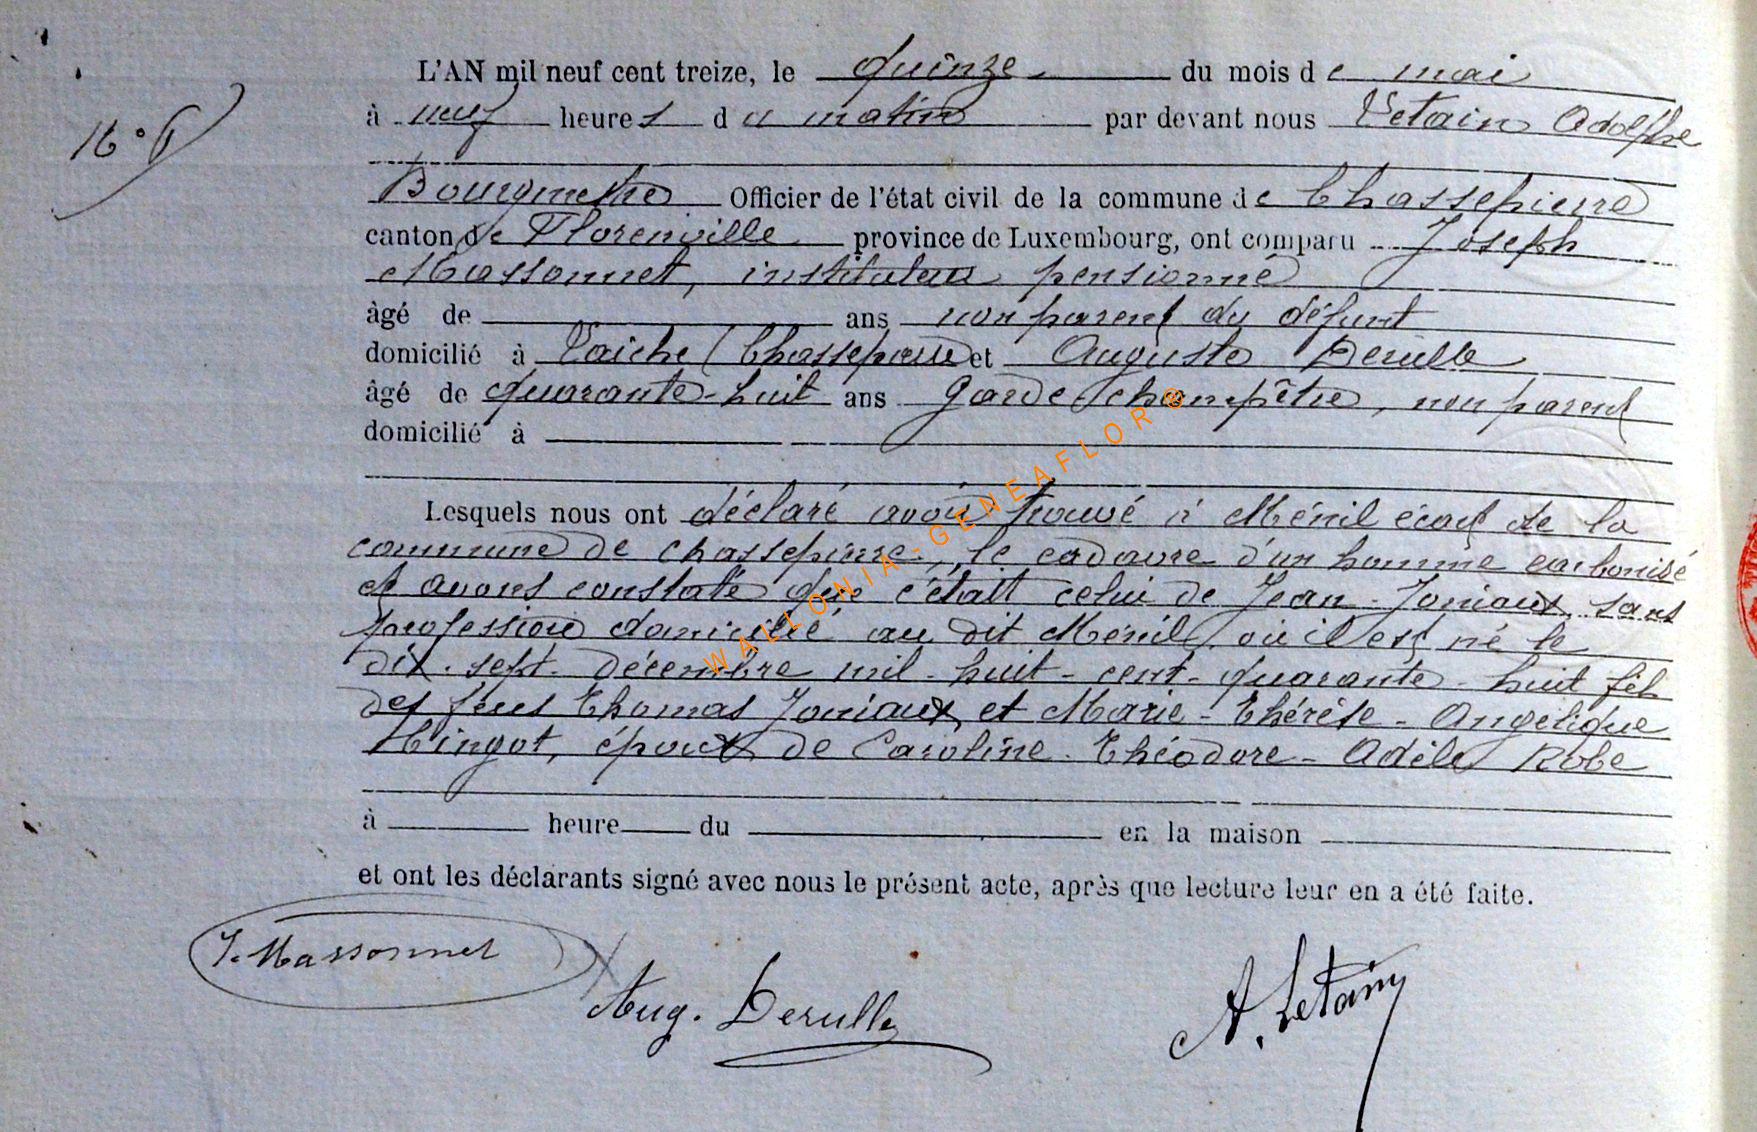 L'AN mil neuf cent treize, le quinze du mois de mai
à neuf heures du matin par devant nous Letain Adolphe
16°
Bourgmestre Officier de l'état civil de la commune de Chassepierre
canton de Florenville province de Luxembourg, ont comparu Joseph
Massonnet, instituteur pensionné
âgé de ans non parent du défunt
domicilié à Laiche (Chassepierre et Auguste Derulle
âgé de quarante-huit ans garde champêtre, non parent
domicilié à
Lesquels nous ont déclaré avoir trouvé à Ménil écart de la
commune de Chassepierre, le cadavre d'un homme carbonisé
et avons constaté que c'était celui de Jean Joniaux, sans
profession domicilié au dit Ménil où il est né le
dix-sept-décembre mil-huit-cent-quarante-huit fils
des feus Thomas Joniaux et Marie-Thérèse-Angelique
Hingot, époux de Caroline-Théodore-Adèle Robe
à heure du en la maison
et ont les déclarants signé avec nous le présent acte, après que lecture leur en a été faite.
J. Massonnet
Aug. Derulle
A. Letain
WALLONIA-GENEAFLOR®